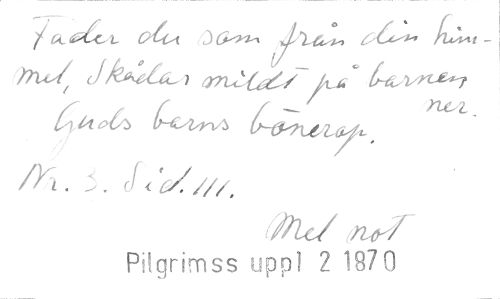 Fader du som från din him-
mel, Skådar mildt på barnen
ner.
Guds barns bönerop.
Nr. 3. Sid. 111.
Mel not
Pilgrimss uppl 2 1870